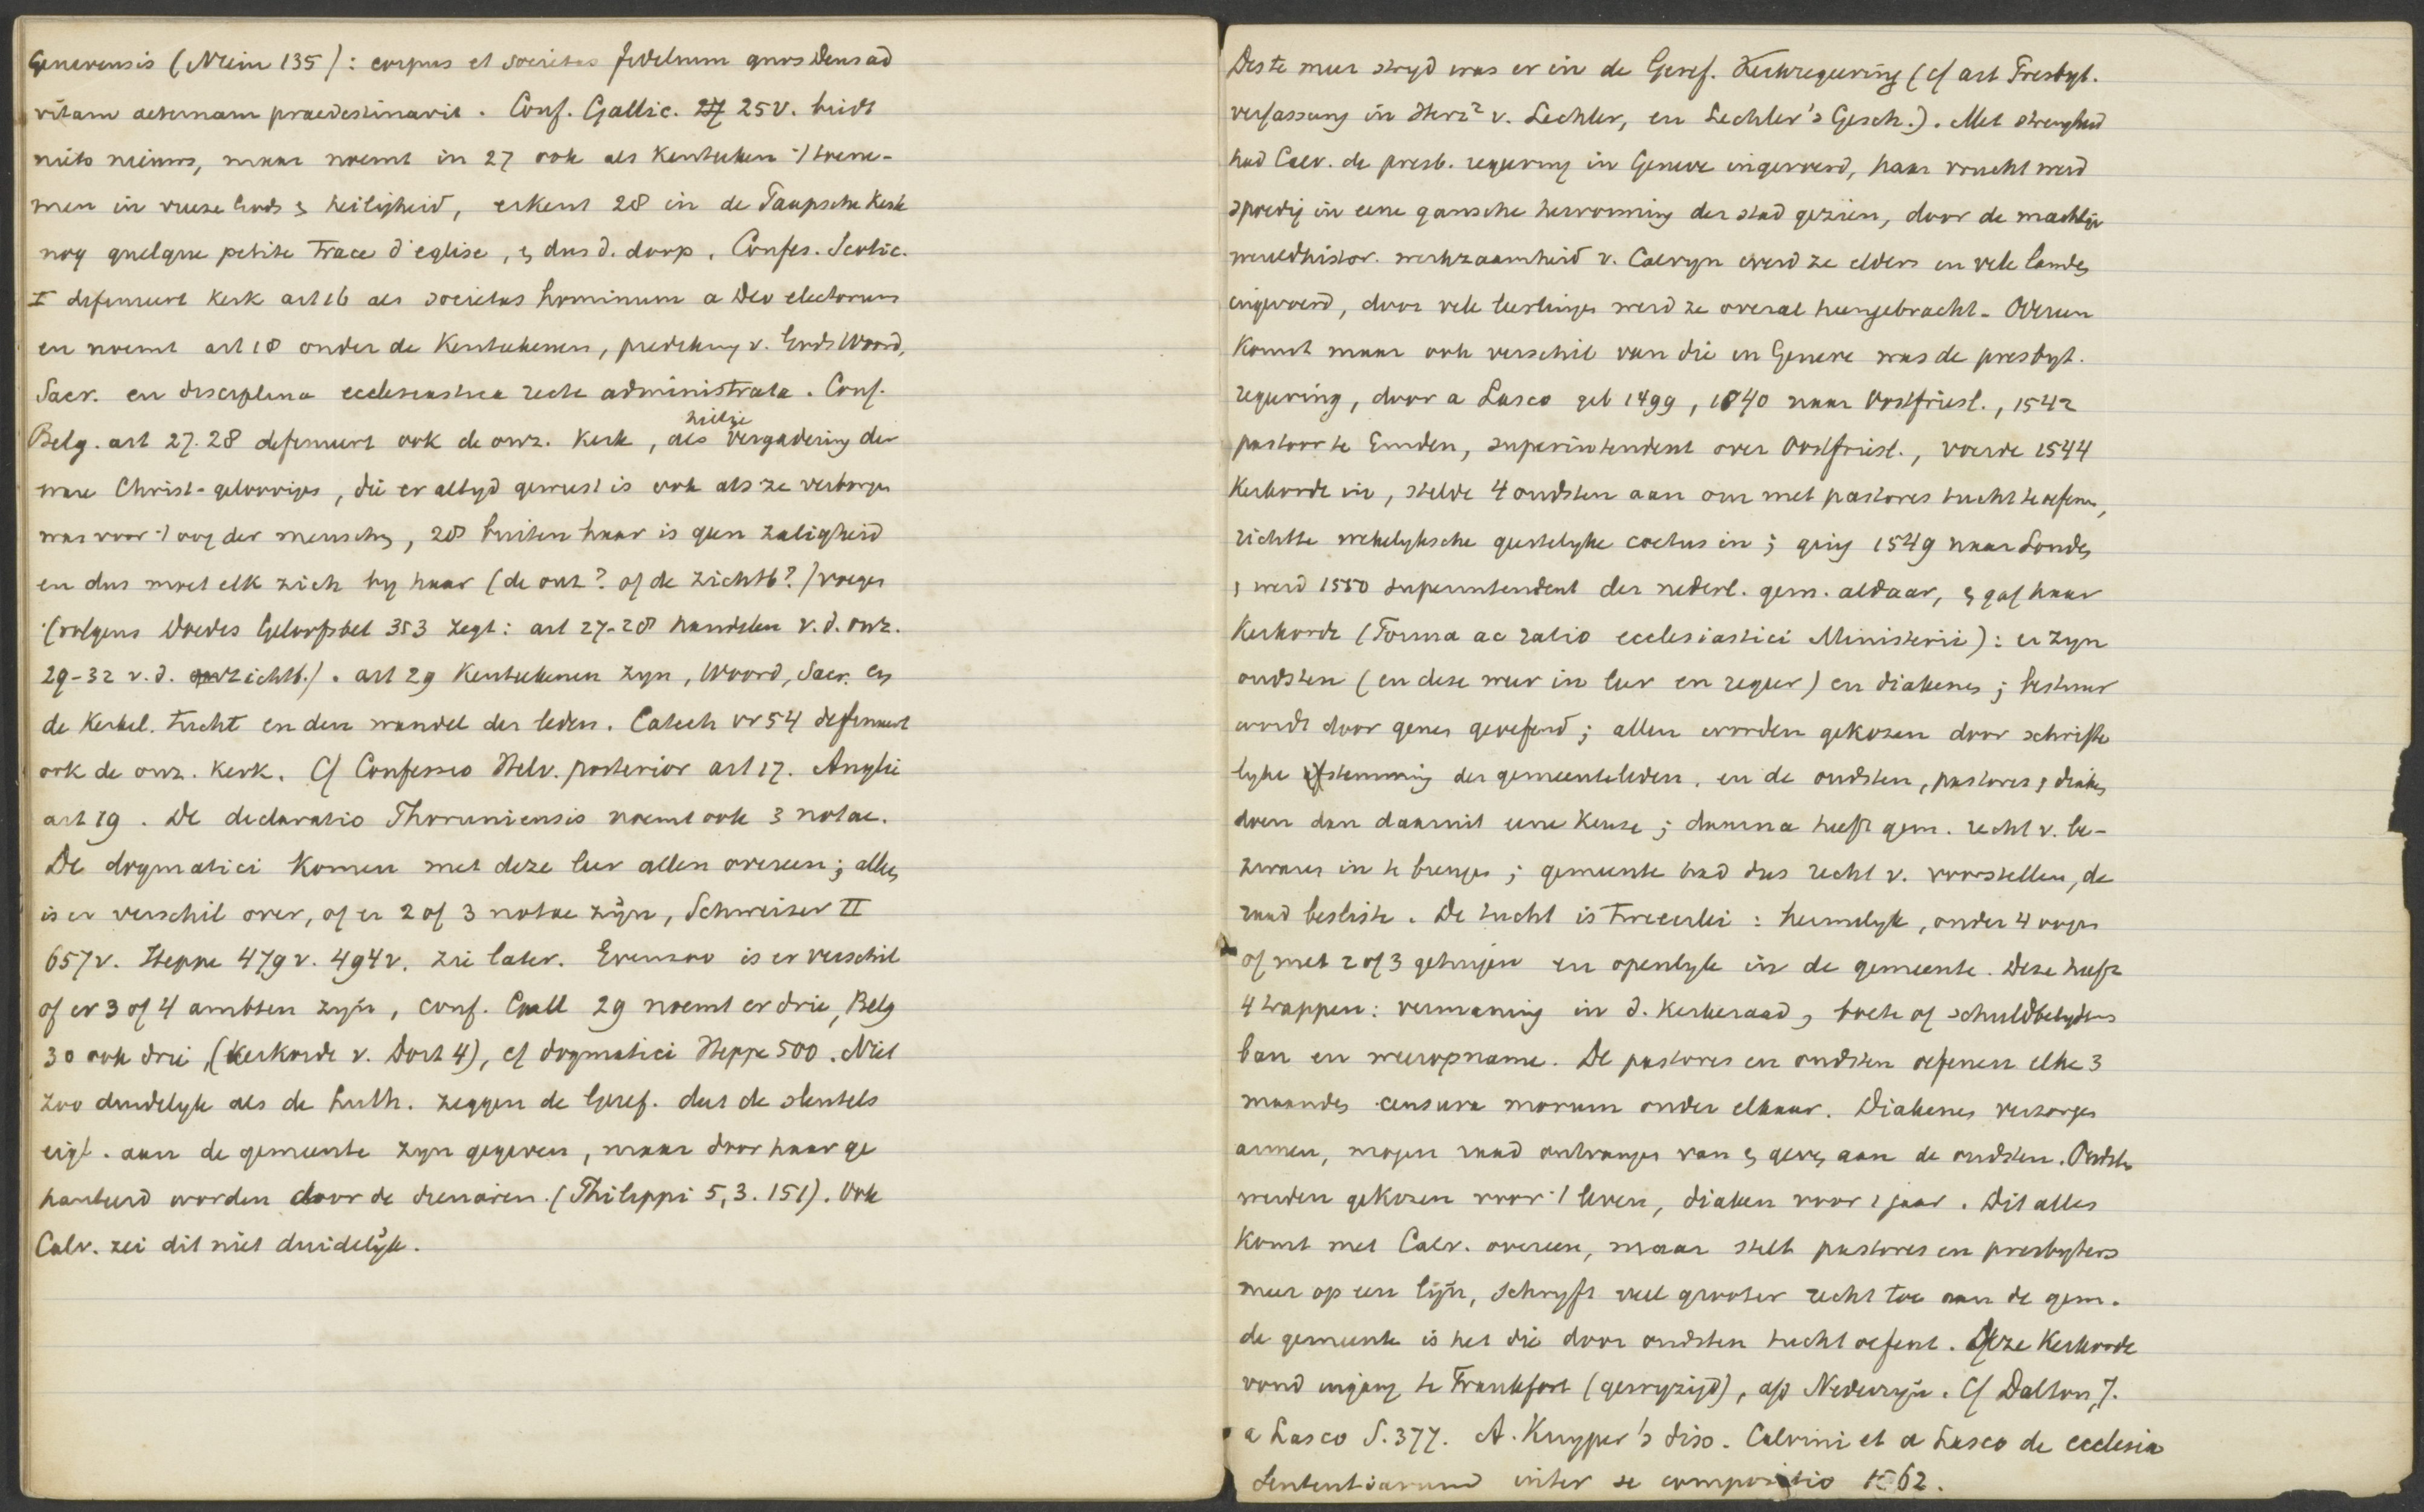 Genevensis (Niem 135): corpus et societas fidelium quos Deus ad
vitam aeternam praedestinavit. Conf. Gallic. 27 25v. biedt
niets nieuws, maar noemt in 27 ook als Kenteeken 't toene-
men in vreeze Gods & heiligheid, erkent 28 in de Paapsche Kerk
nog quelque petite trace d'eglise, & dus d. doop. Confes. Scotic.
I definieert Kerk art 16 als societas hominum a Deo electorum
en noemt art 18 onder de Kenteekenen, prediking v. Gods Woord,
Sacr. en disciplina ecclesiastica recte administrata. Conf.
Belg. art 27. 28 definieert ook de onz. Kerk, als heilige vergadering der
ware Christ-geloovigen, die er altyd geweest is ook als ze verborgen
was voor 't oog der menschen, 28 buiten haar is geen zaligheid
en dus moet elk zich by haar (de onz? of de zichtb?) voegen
(volgens Doedes Geloofsbel 353 zegt: art 27-28 handelen v.d. onz.
29-32 v.d. zichtb.). art 29 Kenteekenen zyn, Woord, Sacr. en
de Kerkel. tucht en den wandel der leden. Catech vr 54 definieert
ook de onz. Kerk. Cf Confessio Helv. posterior art 17. Anglic
art 19. De declaratio Thoruniensis noemt ook 3 notae.
De dogmatici Komen met deze leer allen overeen; alleen
is er verschil over, of er 2 of 3 notae zijn, Schweizer II
657v. Heppe 479v. 494v. zie later. Evenzoo is er verschil
of er 3 of 4 ambten zyn, conf. Gall 29 noemt er drie, Belg
30 ook drie, (Kerkorde v. Dort 4), cf dogmatici Heppe 500. Niet
zoo duidelyk als de Luth. zeggen de Geref. dat de sleutels
eigl. aan de gemeente zyn gegeven, maar door haar ge
hanteerd worden door de dienaren. (Philippi 5,3. 151). Ook
Calv. zei dit niet duidelijk.
Des te meer stryd was er in de Geref. Kerkregeering (cf art Presbyt.
verfassung in Herz² v. Lechler, en Lechler's Gesch.). Met strengheid
had Calv. de presb. regeering in Geneve ingevoerd, haar vrucht werd
spoedig in eene gansche hervorming der stad gezien, door de machtige
wereldhistor. werkzaamheid v. Calvyn werd ze elders in vele landen
ingevoerd, door vele leerlingen werd ze overal heengebracht. Overeen
Komst maar ook verschil van die in Geneve was de presbyt.
regeering, door a Lasco geb 1499, 1540 naar Oostfriesl., 1542
pastoor te Emden, superintendent over Oostfriesl., voerde 1544
Kerkorde in, stelde 4 oudsten aan om met pastores tucht te oefenen,
richtte wekelyksche geestelyke coetus in; ging 1549 naar Londen
& werd 1550 superintendent der nederl. gem. aldaar, & gaf haar
Kerkorde (Forma ac ratio ecclesiastici Ministerii): er zyn
oudsten (en deze weer in leer en regeer) en diakenen; bestuur
wordt door genen geoefend; allen worden gekozen door schrifte
lyke stemming der gemeenteleden, en de oudsten, pastores & diaken
doen dan daaruit eene Keuze; daarna heeft gem. recht v. be-
zwaren in te brengen; gemeente had dus recht v. voorstellen, de
raad besliste. De tucht is tweeerlei: heimelyk, onder 4 oogen
of met 2 of 3 getuigen en openlyk in de gemeente. Deze heeft
4 trappen: vermaning in d. Kerkeraad, boete of schuldbelydenis
ban en weeropname. De pastores en oudsten oefenen elke 3
maanden censura morum onder elkaar. Diakenen verzorgen
armen, mogen raad ontvangen van & geven aan de oudsten. Oudsten
werden gekozen voor 't leven, diaken voor 1 jaar. Dit alles
Komt met Calv. overeen, maar stelt pastores en presbyters
meer op een lijn, schryft veel grooter recht toe aan de gem.
de gemeente is het die door oudsten tucht oefent. Deze Kerkorde
vond ingang te Frankfort (gewyzigd), a/d Nederryn. Cf Dalton, J.
a Lasco S. 377. A. Kuyper's diss. Calvini et a Lasco de ecclesia
Sententiarum inter se compositio 1862.